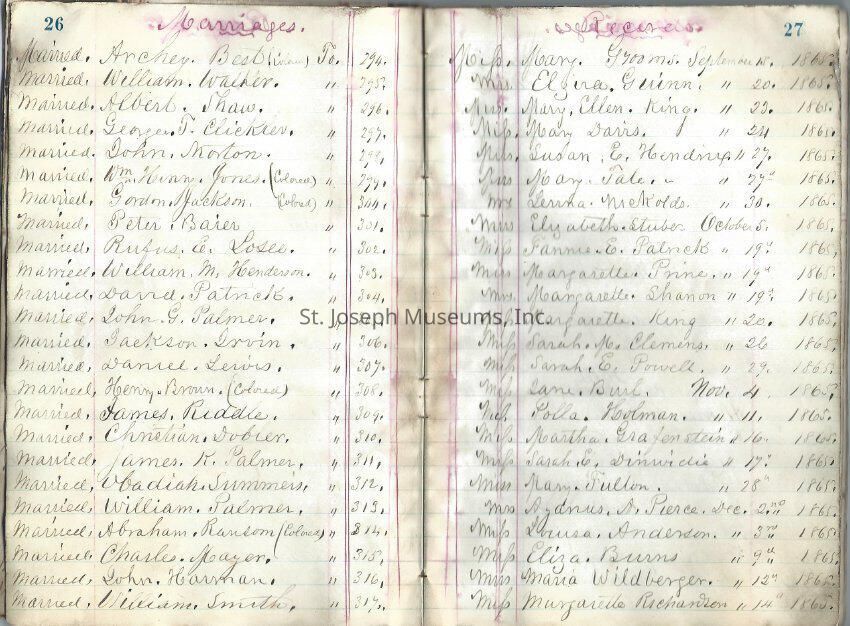 26 Marriages. Records. 27
Married. Archey. Best To. 294. Miss. Mary. Grooms. September 18. 1865.
Married. William. Walker. " 295. Mrs. Elvira. Guinn. " 20. 1865.
Married. Albert. Shaw. " 296. Miss. Mary, Ellen. King. " 23. 1865.
Married. George. T. Clickner. " 297. Miss. Mary Davis. " 24 1865.
Married. John. Norton. " 298. Miss. Susan. E. " 27. 1865.
Married. Wm. Henry. Jones. (Colored) " 299. Miss. Mary. Tate. " 27" 1865.
Married. Gordon. Jackson. (Colored) " 300. " 30. 1865.
Married. Peter. Baier " 301. Miss Elizabeth. Stuber October 5. 1865.
Married. Rufus. E. Losee. " 302. Miss Fannie. E. Patrick " 19" 1865.
Married. William. M. Henderson. " 303. Miss Margarette. Prine. " 19" 1865.
Married. David. Patrick. " 304. Mrs. Margarette. Shanon " 19" 1865.
Married. John. G. Palmer. " Margarette. King " 20. 1865.
Married. Jackson. Irvin. " 306. Miss Sarah. M. Clemens. " 26 1865.
Married. Daniel. Lewis. " 307. Miss Sarah. E. Powell. " 29. 1865.
Married. Henry. Brown. (Colored) " 308. Miss Jane. Burl. Nov. 4. 1865.
Married. James. Riddle. " 309. Miss Polla. Holman. " 11. 1865.
Married. Christian. Dobler. " 310. Miss Martha. Grafenstein " 16. 1865.
Married. James. K. Palmer. " 311. Miss Sarah. E. Dinwidie " 17" 1865.
Married. Obadiah. Summers. " 312. Miss Mary. Fulton. " 28" 1865.
Married. William. Palmer. " 313. Mrs A. Pierce. Dec. 2nd 1865.
Married. Abraham. Ransom (Colored) " 314. Miss Louisa. Anderson. " 3rd 1865.
Married. Charles. Mayer. " 315. Miss Eliza. Burns " 9" 1865.
Married. John. Harman. " 316. Miss Maria Wildberger. " 12" 1865.
Married. William. Smith. " 317. Miss Margarette Richardson " 14" 1865.
St. Joseph Museums, Inc.